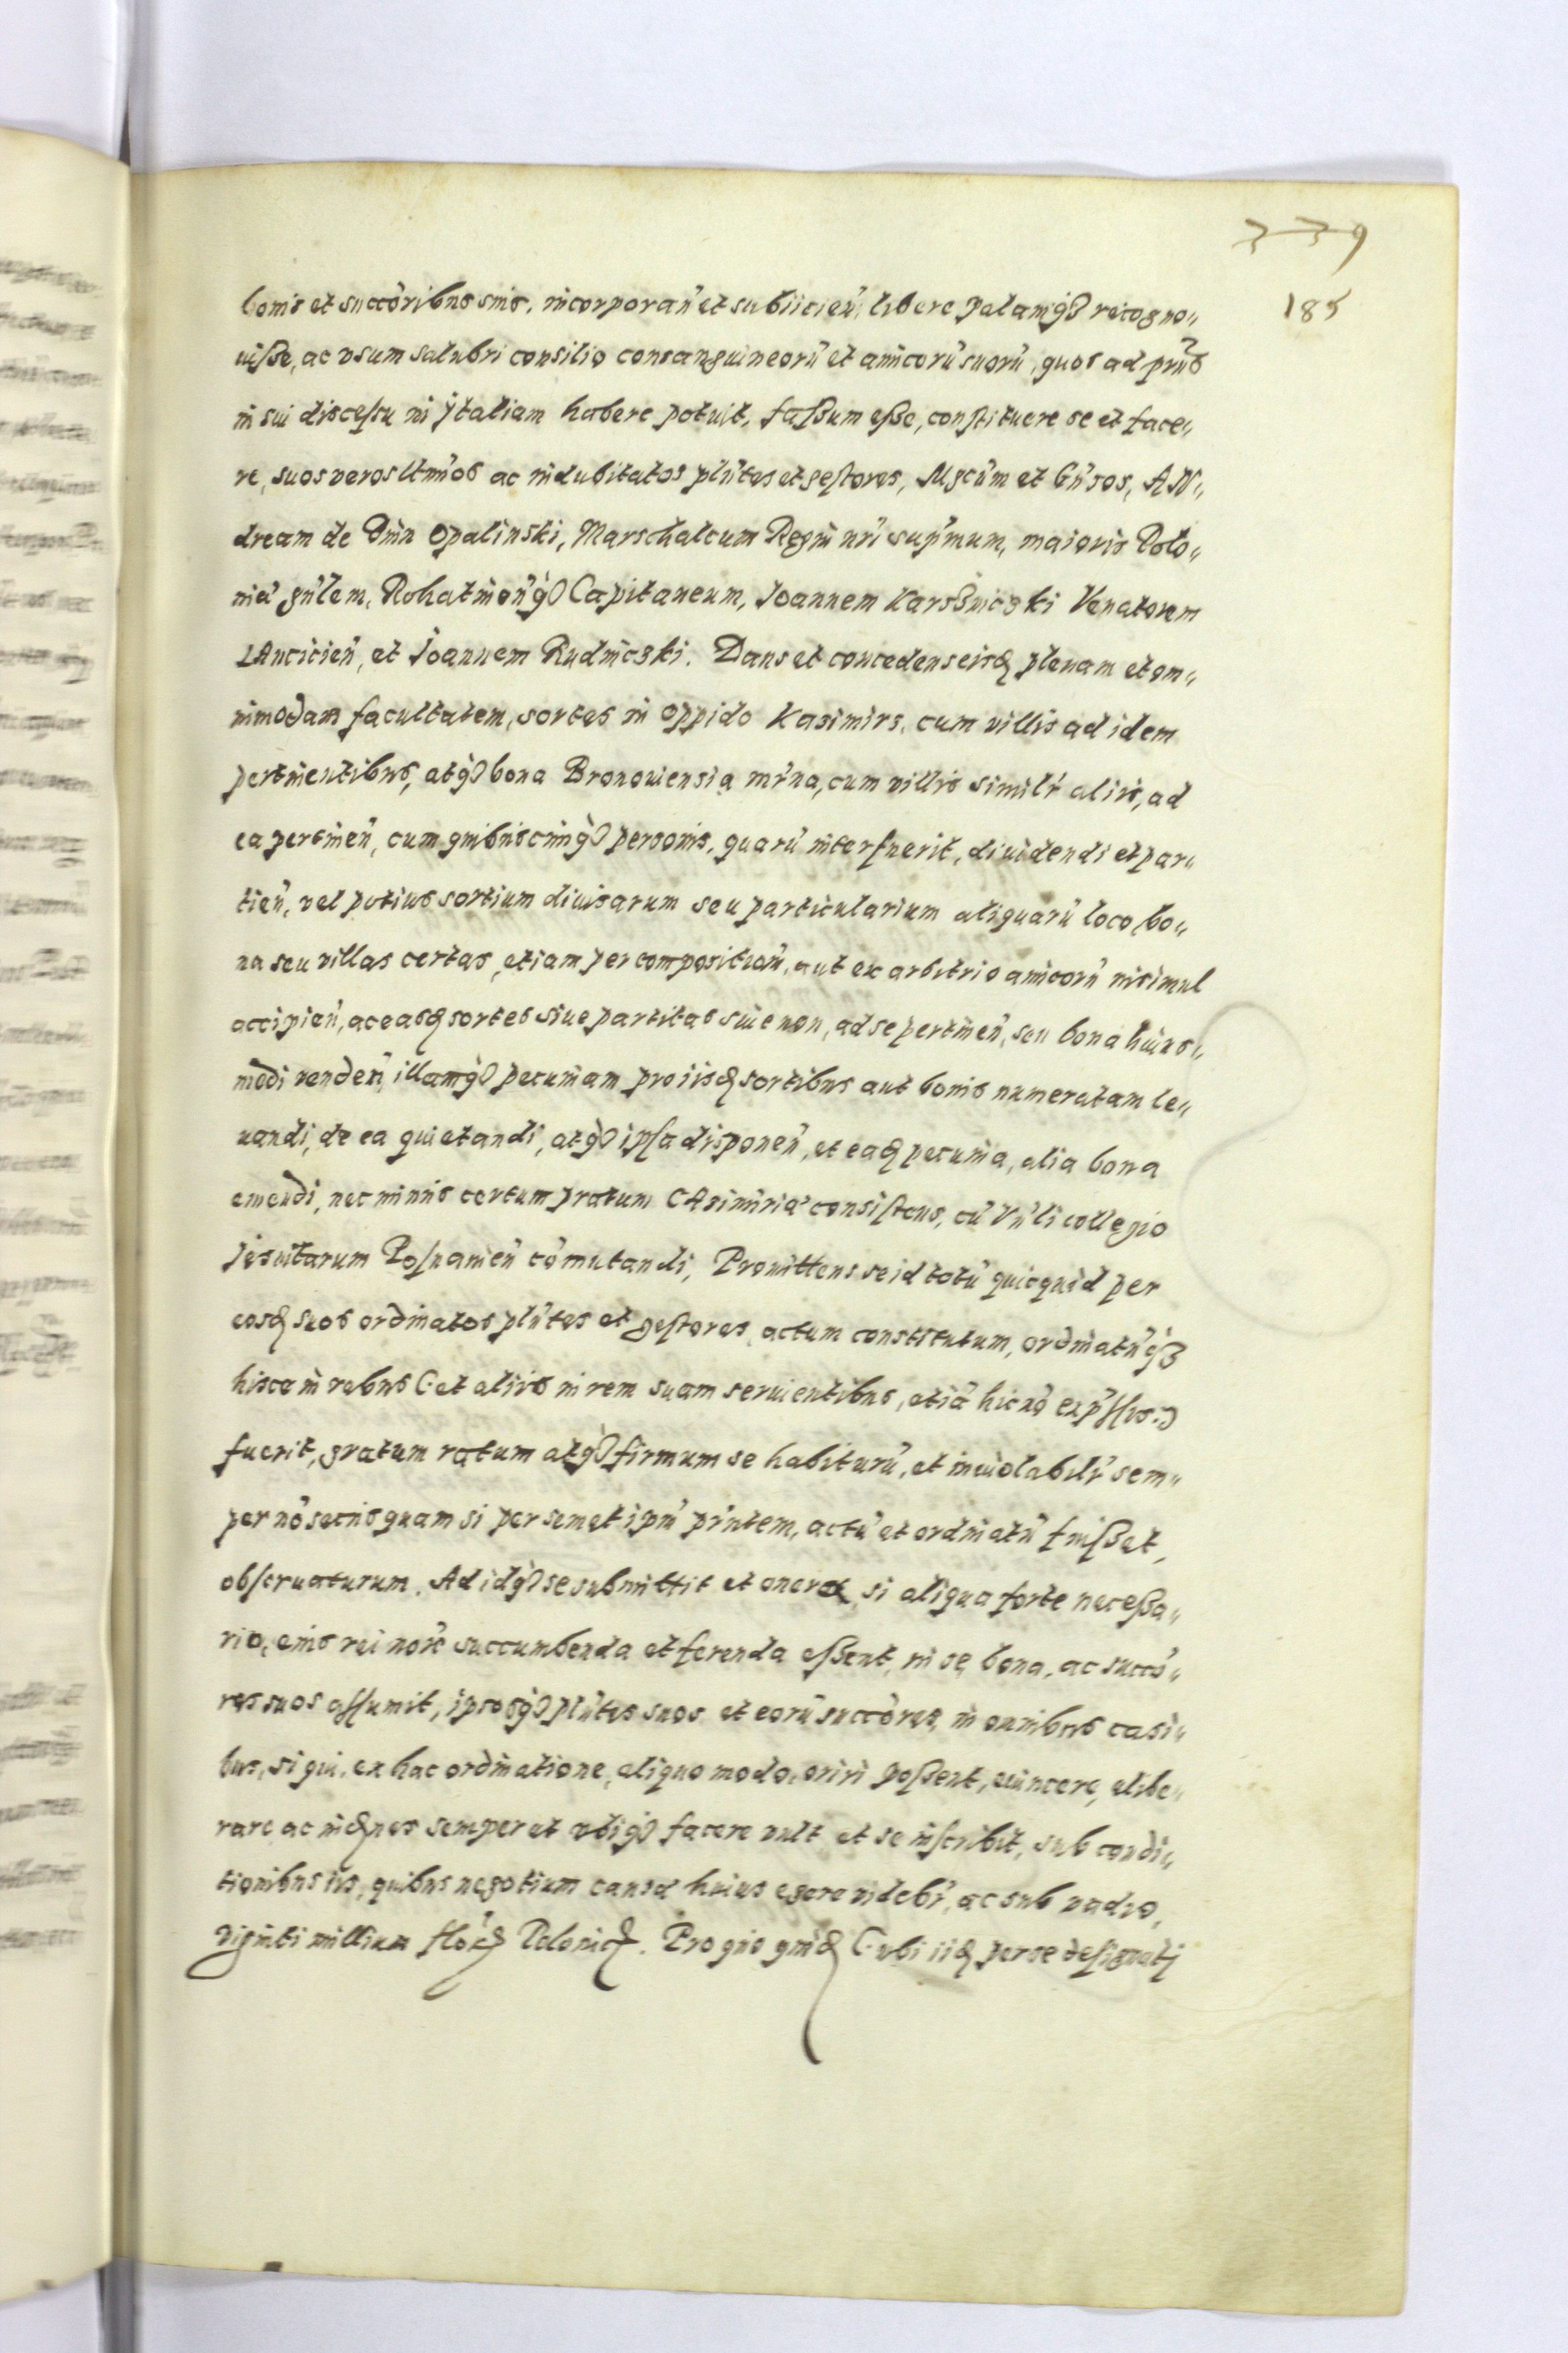 339
185
bonis et succōribus suis, incorporan̄ et subiicien̄, libere palamq̃ recogno„
uiße, ac vsum salubri consilio consanguineorū et amicorū suorū, quos ad prn̄s
in sui discessu in Jtaliam habere potuit, faßum eße, constituere se et face„
re, suos veros ltm̄os ac indubitatos pln̄tes et gestores, Mgcūm et Gn̄sos, AN„
dream de Bnin Opalinski, Marschalcum Regni nr̄i supr̄mum, maioris Polo„
niæ gn̄lem, Rohatinen̄q̃ Capitaneum, Joannem Karsßniczki Venatorem
LAncicien̄, et Joannem Rudniczki. Dans et concedens eisd plenam et om„
nimodam facultatem, sortes in oppido Kasimirz, cum villis ad idem
pertinentibus, atq̃ bona Bronouiensia mr̄na, cum villis similr̄ aliis, ad
ea pertinen̄, cum quibuscunq̃ personis, quarū interfuerit, diuidendi et par„
tien̄, vel potius sortium diuisarum seu particularium aliquarū loco bo„
na seu villas certas, etiam per compositiōn̄, aut ex arbitrio amicorū insimul
accipien̄, ac easd sortes siue partitas siue non, ad se pertinen̄, seu bona huius„
modi venden̄, illamq̃ pecuniam pro iisd sortibus aut bonis numeratam le„
uandi, de ea quietandi, atq̃ ipsa disponen̄, et ead pecunia, alia bona
emendi, nec minus certum pratum CAsimiriæ consistens, cū Vn̄li collegio
Jesuitarum Posnanien̄ cōmutandi, Promittens se id totū quicquid per
eosd suos ordinatos pln̄tes et gestores, actum constitutum, ordinatūq̃
hisce in rebus (: et aliis in rem suam seruientibus, etiā hic nō exp̄ssis :)
fuerit, gratum ratum atq̃ firmum se habiturū, et inuiolabilr̄ sem„
per nō secus quam si per semet ipm̄ prn̄tem, actū et ordinatū fuißet,
obseruaturum. Ad idq̃ se submittit et onera, si aliqua forte neceßa„
rio, eius rei noīe succumbenda et ferenda eßent, in se, bona, ac succō„
res suos assumit, ipsosq̃ pln̄tes suos et eorū succōres, in omnibus casi„
bus, si qui, ex hac ordinatione, aliquo modo, oriri poßent, euincere, elibe„
rare ac indnes semper et vbiq̃ facere vult et se inscribit, sub condi„
tionibus iis, quibus negotium causæ huius egere videbr̄, ac sub vadio,
viginti millium flor Polonic. Pro quo quid (: vbi iid per se designati